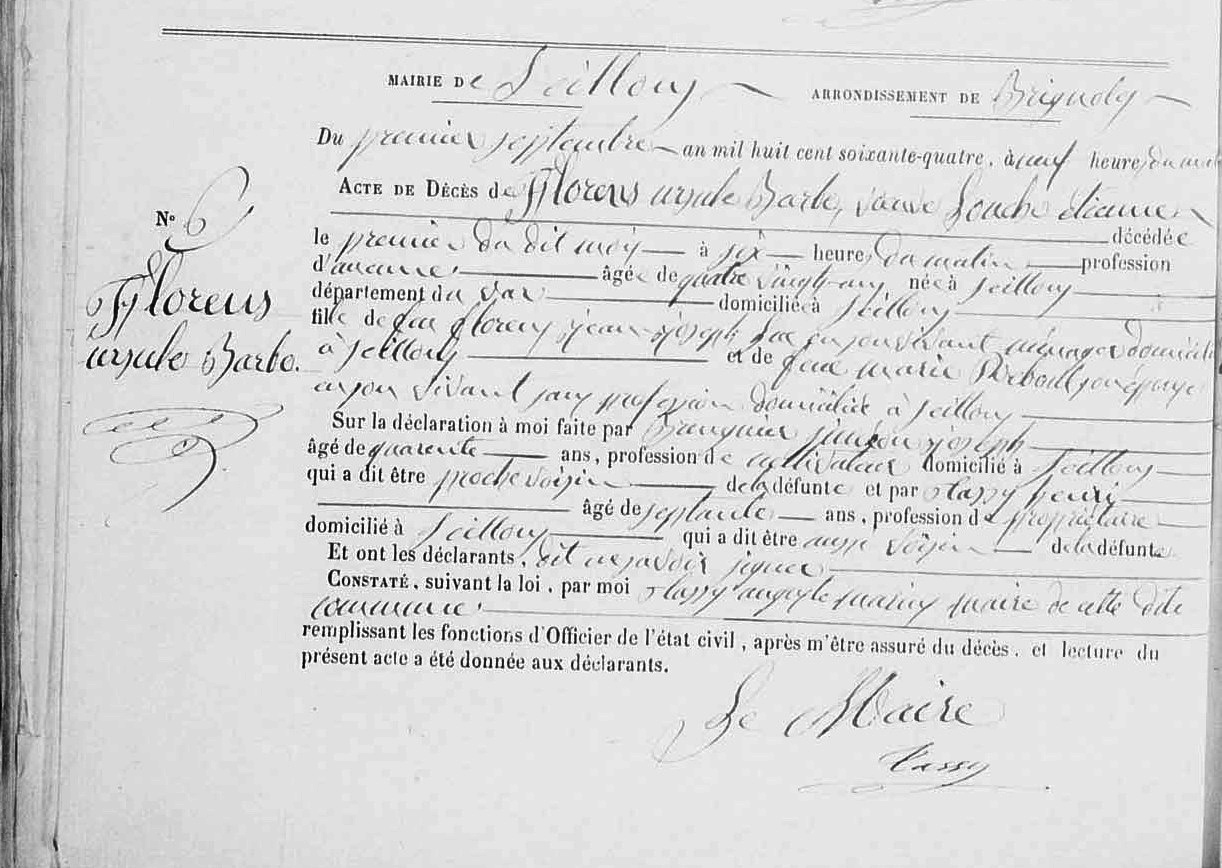 MAIRIE De Seillons ARRONDISSEMENT DE Brignoles
Du premier septembre an mil huit cent soixante-quatre, à neuf heures du
ACTE DE DÉCÈS de Florens ursule Barbe, veuve Louche étienne
N° 6
décédée
le premier du dit mois à six heures du matin profession
d'aucune âgée de quatre vingts ans née à Seillons
Florens
département du var domiciliée à Seillons
fille de feu florens jean joseph en son vivant ménager domicilié
ursule Barbe.
à Seillons et de feue marie Reboul son épouse
en son vivant sans profession domiciliée à Seillons
Sur la déclaration à moi faite par joseph
âgé de quarente ans, profession de cultivateur domicilié à Seillons
qui a dit être proche voisin de la défunte et par tassy henri
âgé de septante ans, profession de propriétaire
domicilié à Seillons qui a dit être aussi voisin de la défunte
Et ont les déclarants, dit ne savoir signer
CONSTATÉ, suivant la loi, par moi tassy auguste marius maire de cette dite
commune
remplissant les fonctions d'Officier de l'état civil, après m'être assuré du décès, et lecture du
présent acte a été donnée aux déclarants.
Le Maire
Tassy